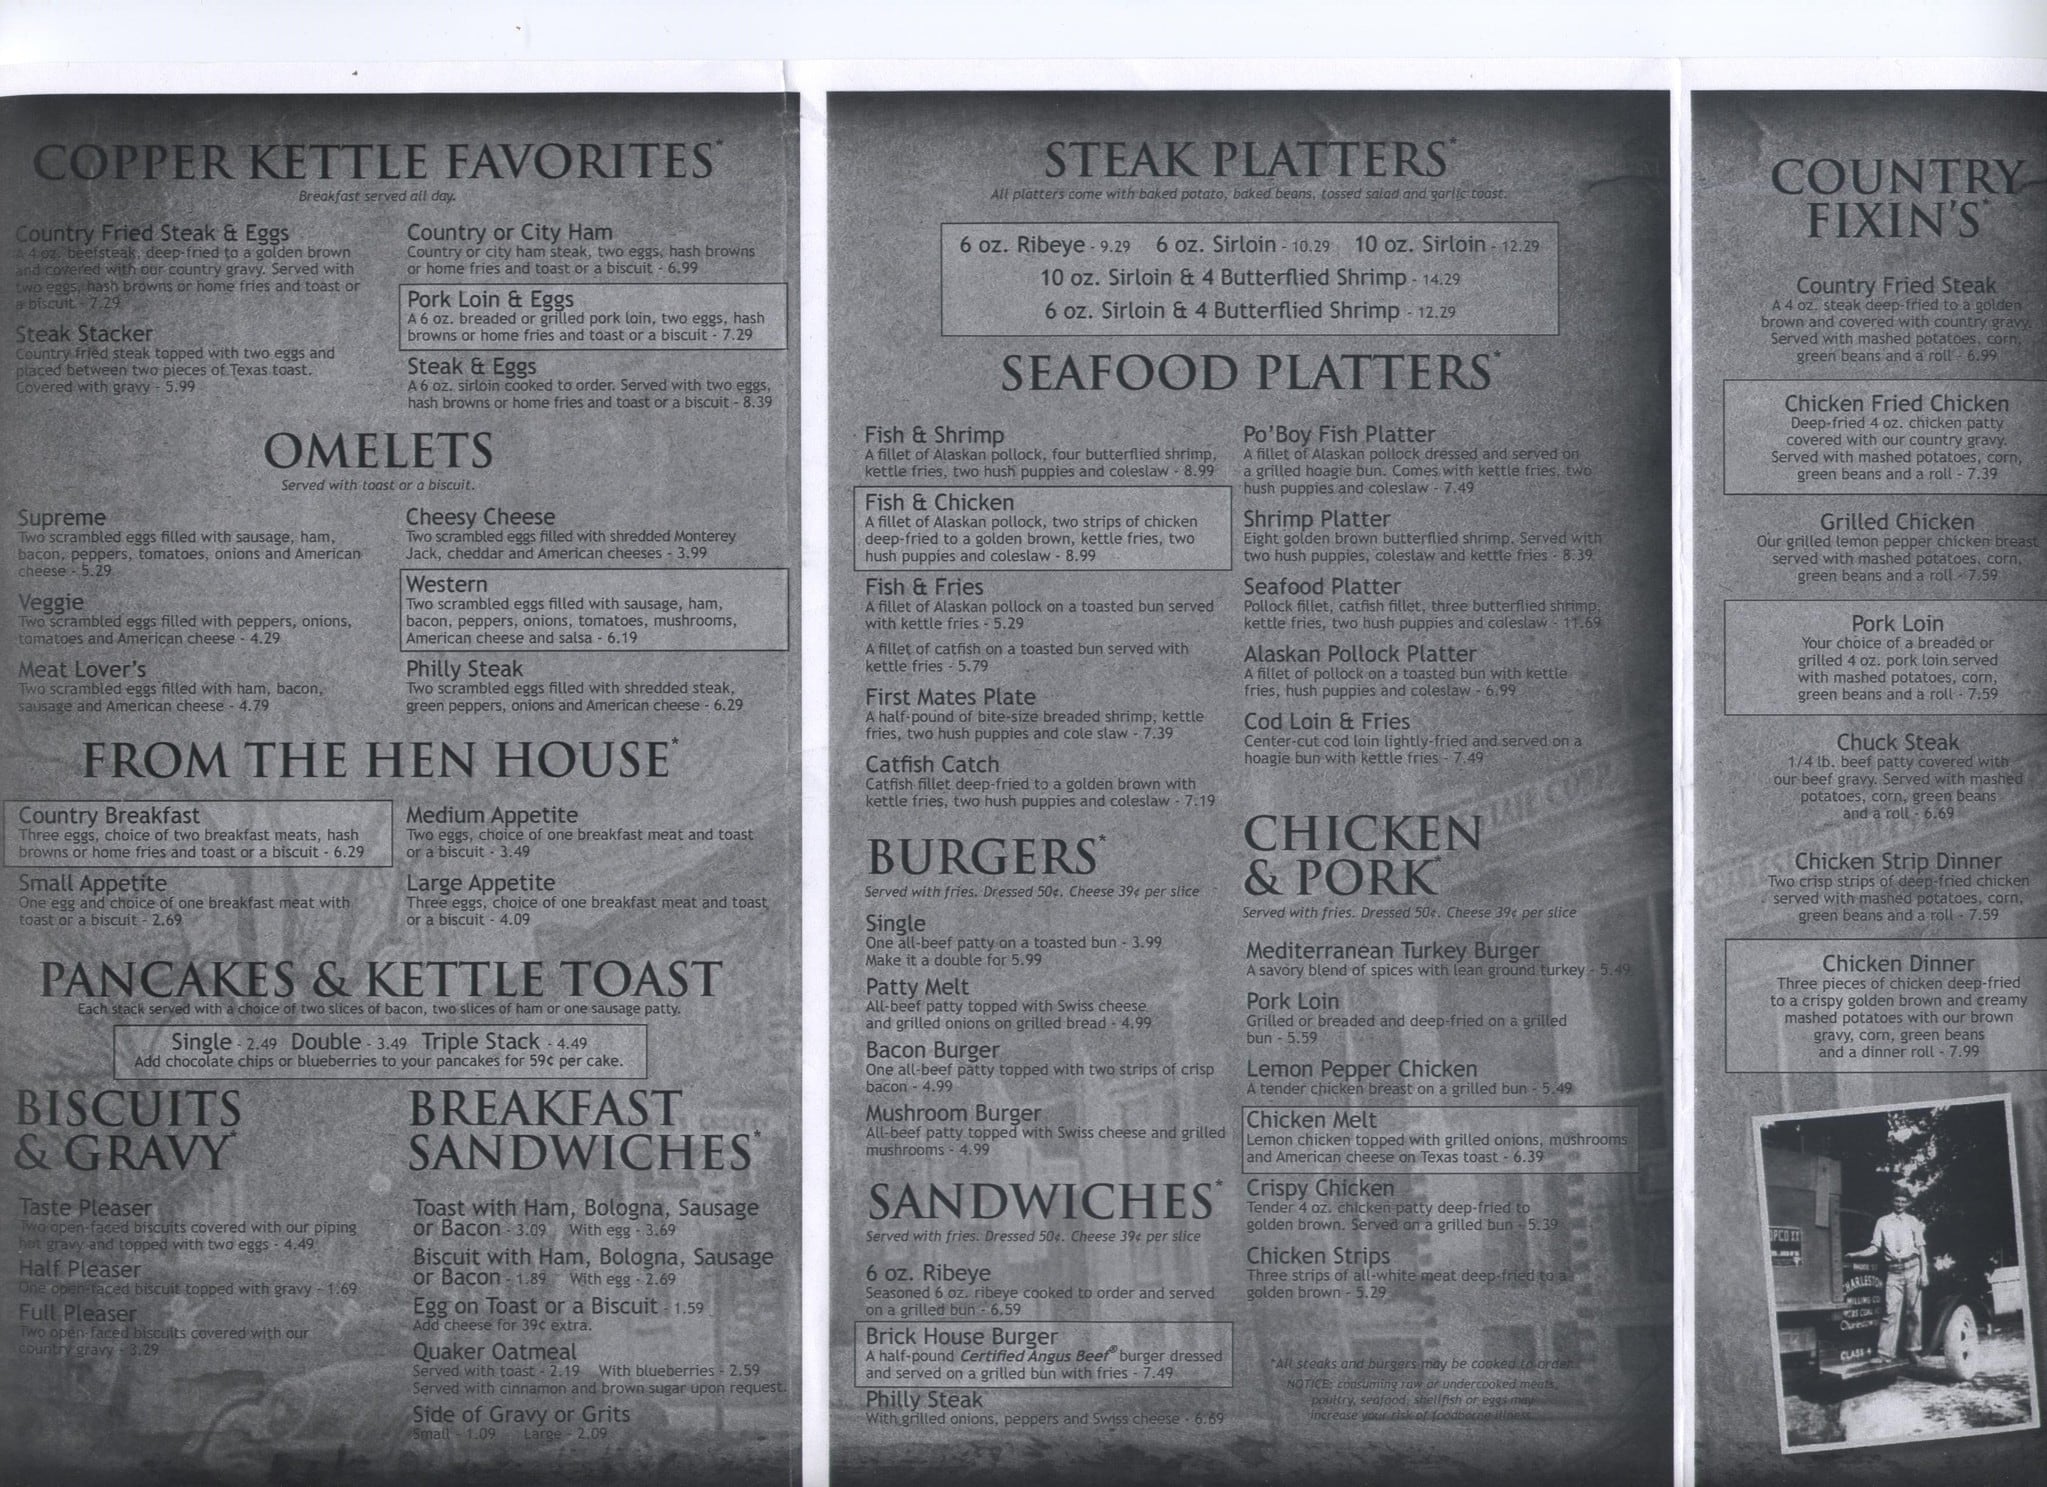 COPPER KETTLE FAVORITES*
Breakfast served all day.
Country Fried Steak & Eggs
A 4 oz. beefsteak, deep-fried to a golden brown
and covered with our country gravy. Served with
two eggs, hash browns or home fries and toast or
a biscuit - 7.29
Steak Stacker
Country fried steak topped with two eggs and
placed between two pieces of Texas toast.
Covered with gravy - 5.99
Country or City Ham
Country or city ham steak, two eggs, hash browns
or home fries and toast or a biscuit - 6.99
Pork Loin & Eggs
A 6 oz. breaded or grilled pork loin, two eggs, hash
browns or home fries and toast or a biscuit - 7.29
Steak & Eggs
A 6 oz. sirloin cooked to order. Served with two eggs,
hash browns or home fries and toast or a biscuit - 8.39
OMELETS
Served with toast or a biscuit.
Supreme
Two scrambled eggs filled with sausage, ham,
bacon, peppers, tomatoes, onions and American
cheese - 5.29
Veggie
Two scrambled eggs filled with peppers, onions,
tomatoes and American cheese - 4.29
Meat Lover's
Two scrambled eggs filled with ham, bacon,
sausage and American cheese - 4.79
Cheesy Cheese
Two scrambled eggs filled with shredded Monterey
Jack, cheddar and American cheeses - 3.99
Western
Two scrambled eggs filled with sausage, ham,
bacon, peppers, onions, tomatoes, mushrooms,
American cheese and salsa - 6.19
Philly Steak
Two scrambled eggs filled with shredded steak,
green peppers, onions and American cheese - 6.29
FROM THE HEN HOUSE*
Country Breakfast
Three eggs, choice of two breakfast meats, hash
browns or home fries and toast or a biscuit - 6.29
Small Appetite
One egg and choice of one breakfast meat with
toast or a biscuit - 2.69
Medium Appetite
Two eggs, choice of one breakfast meat and toast
or a biscuit - 3.49
Large Appetite
Three eggs, choice of one breakfast meat and toast
or a biscuit - 4.09
PANCAKES & KETTLE TOAST
Each stack served with a choice of two slices of bacon, two slices of ham or one sausage patty.
Single - 2.49 Double - 3.49 Triple Stack - 4.49
Add chocolate chips or blueberries to your pancakes for 59¢ per cake.
BISCUITS
& GRAVY*
Taste Pleaser
Two open-faced biscuits covered with our piping
hot gravy and topped with two eggs - 4.49
Half Pleaser
One open-faced biscuit topped with gravy - 1.69
Full Pleaser
Two open-faced biscuits covered with our
country gravy - 3.29
BREAKFAST
SANDWICHES*
Toast with Ham, Bologna, Sausage
or Bacon - 3.09 With egg - 3.69
Biscuit with Ham, Bologna, Sausage
or Bacon - 1.89 With egg - 2.69
Egg on Toast or a Biscuit - 1.59
Add cheese for 39¢ extra.
Quaker Oatmeal
Served with toast - 2.19 With blueberries - 2.59
Served with cinnamon and brown sugar upon request.
Side of Gravy or Grits
Small - 1.09 Large - 2.09
STEAK PLATTERS*
All platters come with baked potato, baked beans, tossed salad and garlic toast.
6 oz. Ribeye - 9.29 6 oz. Sirloin - 10.29 10 oz. Sirloin - 12.29
10 oz. Sirloin & 4 Butterflied Shrimp - 14.29
6 oz. Sirloin & 4 Butterflied Shrimp - 12.29
SEAFOOD PLATTERS*
Fish & Shrimp
A fillet of Alaskan pollock, four butterflied shrimp,
kettle fries, two hush puppies and coleslaw - 8.99
Fish & Chicken
A fillet of Alaskan pollock, two strips of chicken
deep-fried to a golden brown, kettle fries, two
hush puppies and coleslaw - 8.99
Fish & Fries
A fillet of Alaskan pollock on a toasted bun served
with kettle fries - 5.29
A fillet of catfish on a toasted bun served with
kettle fries - 5.79
First Mates Plate
A half-pound of bite-size breaded shrimp, kettle
fries, two hush puppies and cole slaw - 7.39
Catfish Catch
Catfish fillet deep-fried to a golden brown with
kettle fries, two hush puppies and coleslaw - 7.19
Po'Boy Fish Platter
A fillet of Alaskan pollock dressed and served on
a grilled hoagie bun. Comes with kettle fries, two
hush puppies and coleslaw - 7.49
Shrimp Platter
Eight golden brown butterflied shrimp. Served with
two hush puppies, coleslaw and kettle fries - 8.39
Seafood Platter
Pollock fillet, catfish fillet, three butterflied shrimp,
kettle fries, two hush puppies and coleslaw - 11.69
Alaskan Pollock Platter
A fillet of pollock on a toasted bun with kettle
fries, hush puppies and coleslaw - 6.99
Cod Loin & Fries
Center-cut cod loin lightly-fried and served on a
hoagie bun with kettle fries - 7.49
BURGERS*
Served with fries. Dressed 50¢. Cheese 39¢ per slice
Single
One all-beef patty on a toasted bun - 3.99
Make it a double for 5.99
Patty Melt
All-beef patty topped with Swiss cheese
and grilled onions on grilled bread - 4.99
Bacon Burger
One all-beef patty topped with two strips of crisp
bacon - 4.99
Mushroom Burger
All-beef patty topped with Swiss cheese and grilled
mushrooms - 4.99
SANDWICHES*
Served with fries. Dressed 50¢. Cheese 39¢ per slice
6 oz. Ribeye
Seasoned 6 oz. ribeye cooked to order and served
on a grilled bun - 6.59
Brick House Burger
A half-pound Certified Angus Beef® burger dressed
and served on a grilled bun with fries - 7.49
Philly Steak
With grilled onions, peppers and Swiss cheese - 6.69
CHICKEN
& PORK*
Served with fries. Dressed 50¢. Cheese 39¢ per slice
Mediterranean Turkey Burger
A savory blend of spices with lean ground turkey - 5.49
Pork Loin
Grilled or breaded and deep-fried on a grilled
bun - 5.59
Lemon Pepper Chicken
A tender chicken breast on a grilled bun - 5.49
Chicken Melt
Lemon chicken topped with grilled onions, mushrooms
and American cheese on Texas toast - 6.39
Crispy Chicken
Tender 4 oz. chicken patty deep-fried to
golden brown. Served on a grilled bun - 5.39
Chicken Strips
Three strips of all-white meat deep-fried to a
golden brown - 5.29
*All steaks and burgers may be cooked to order.
NOTICE: consuming raw or undercooked meats,
poultry, seafood, shellfish or eggs may
increase your risk of foodborne illness.
COUNTRY
FIXIN'S*
Country Fried Steak
A 4 oz. steak deep-fried to a golden
brown and covered with country gravy.
Served with mashed potatoes, corn,
green beans and a roll - 6.99
Chicken Fried Chicken
Deep-fried 4 oz. chicken patty
covered with our country gravy.
Served with mashed potatoes, corn,
green beans and a roll - 7.39
Grilled Chicken
Our grilled lemon pepper chicken breast
served with mashed potatoes, corn,
green beans and a roll - 7.59
Pork Loin
Your choice of a breaded or
grilled 4 oz. pork loin served
with mashed potatoes, corn,
green beans and a roll - 7.59
Chuck Steak
1/4 lb. beef patty covered with
our beef gravy. Served with mashed
potatoes, corn, green beans
and a roll - 6.69
Chicken Strip Dinner
Two crisp strips of deep-fried chicken
served with mashed potatoes, corn,
green beans and a roll - 7.59
Chicken Dinner
Three pieces of chicken deep-fried
to a crispy golden brown and creamy
mashed potatoes with our brown
gravy, corn, green beans
and a dinner roll - 7.99
CHARLESTON
MILLING CO.
CLASS 4